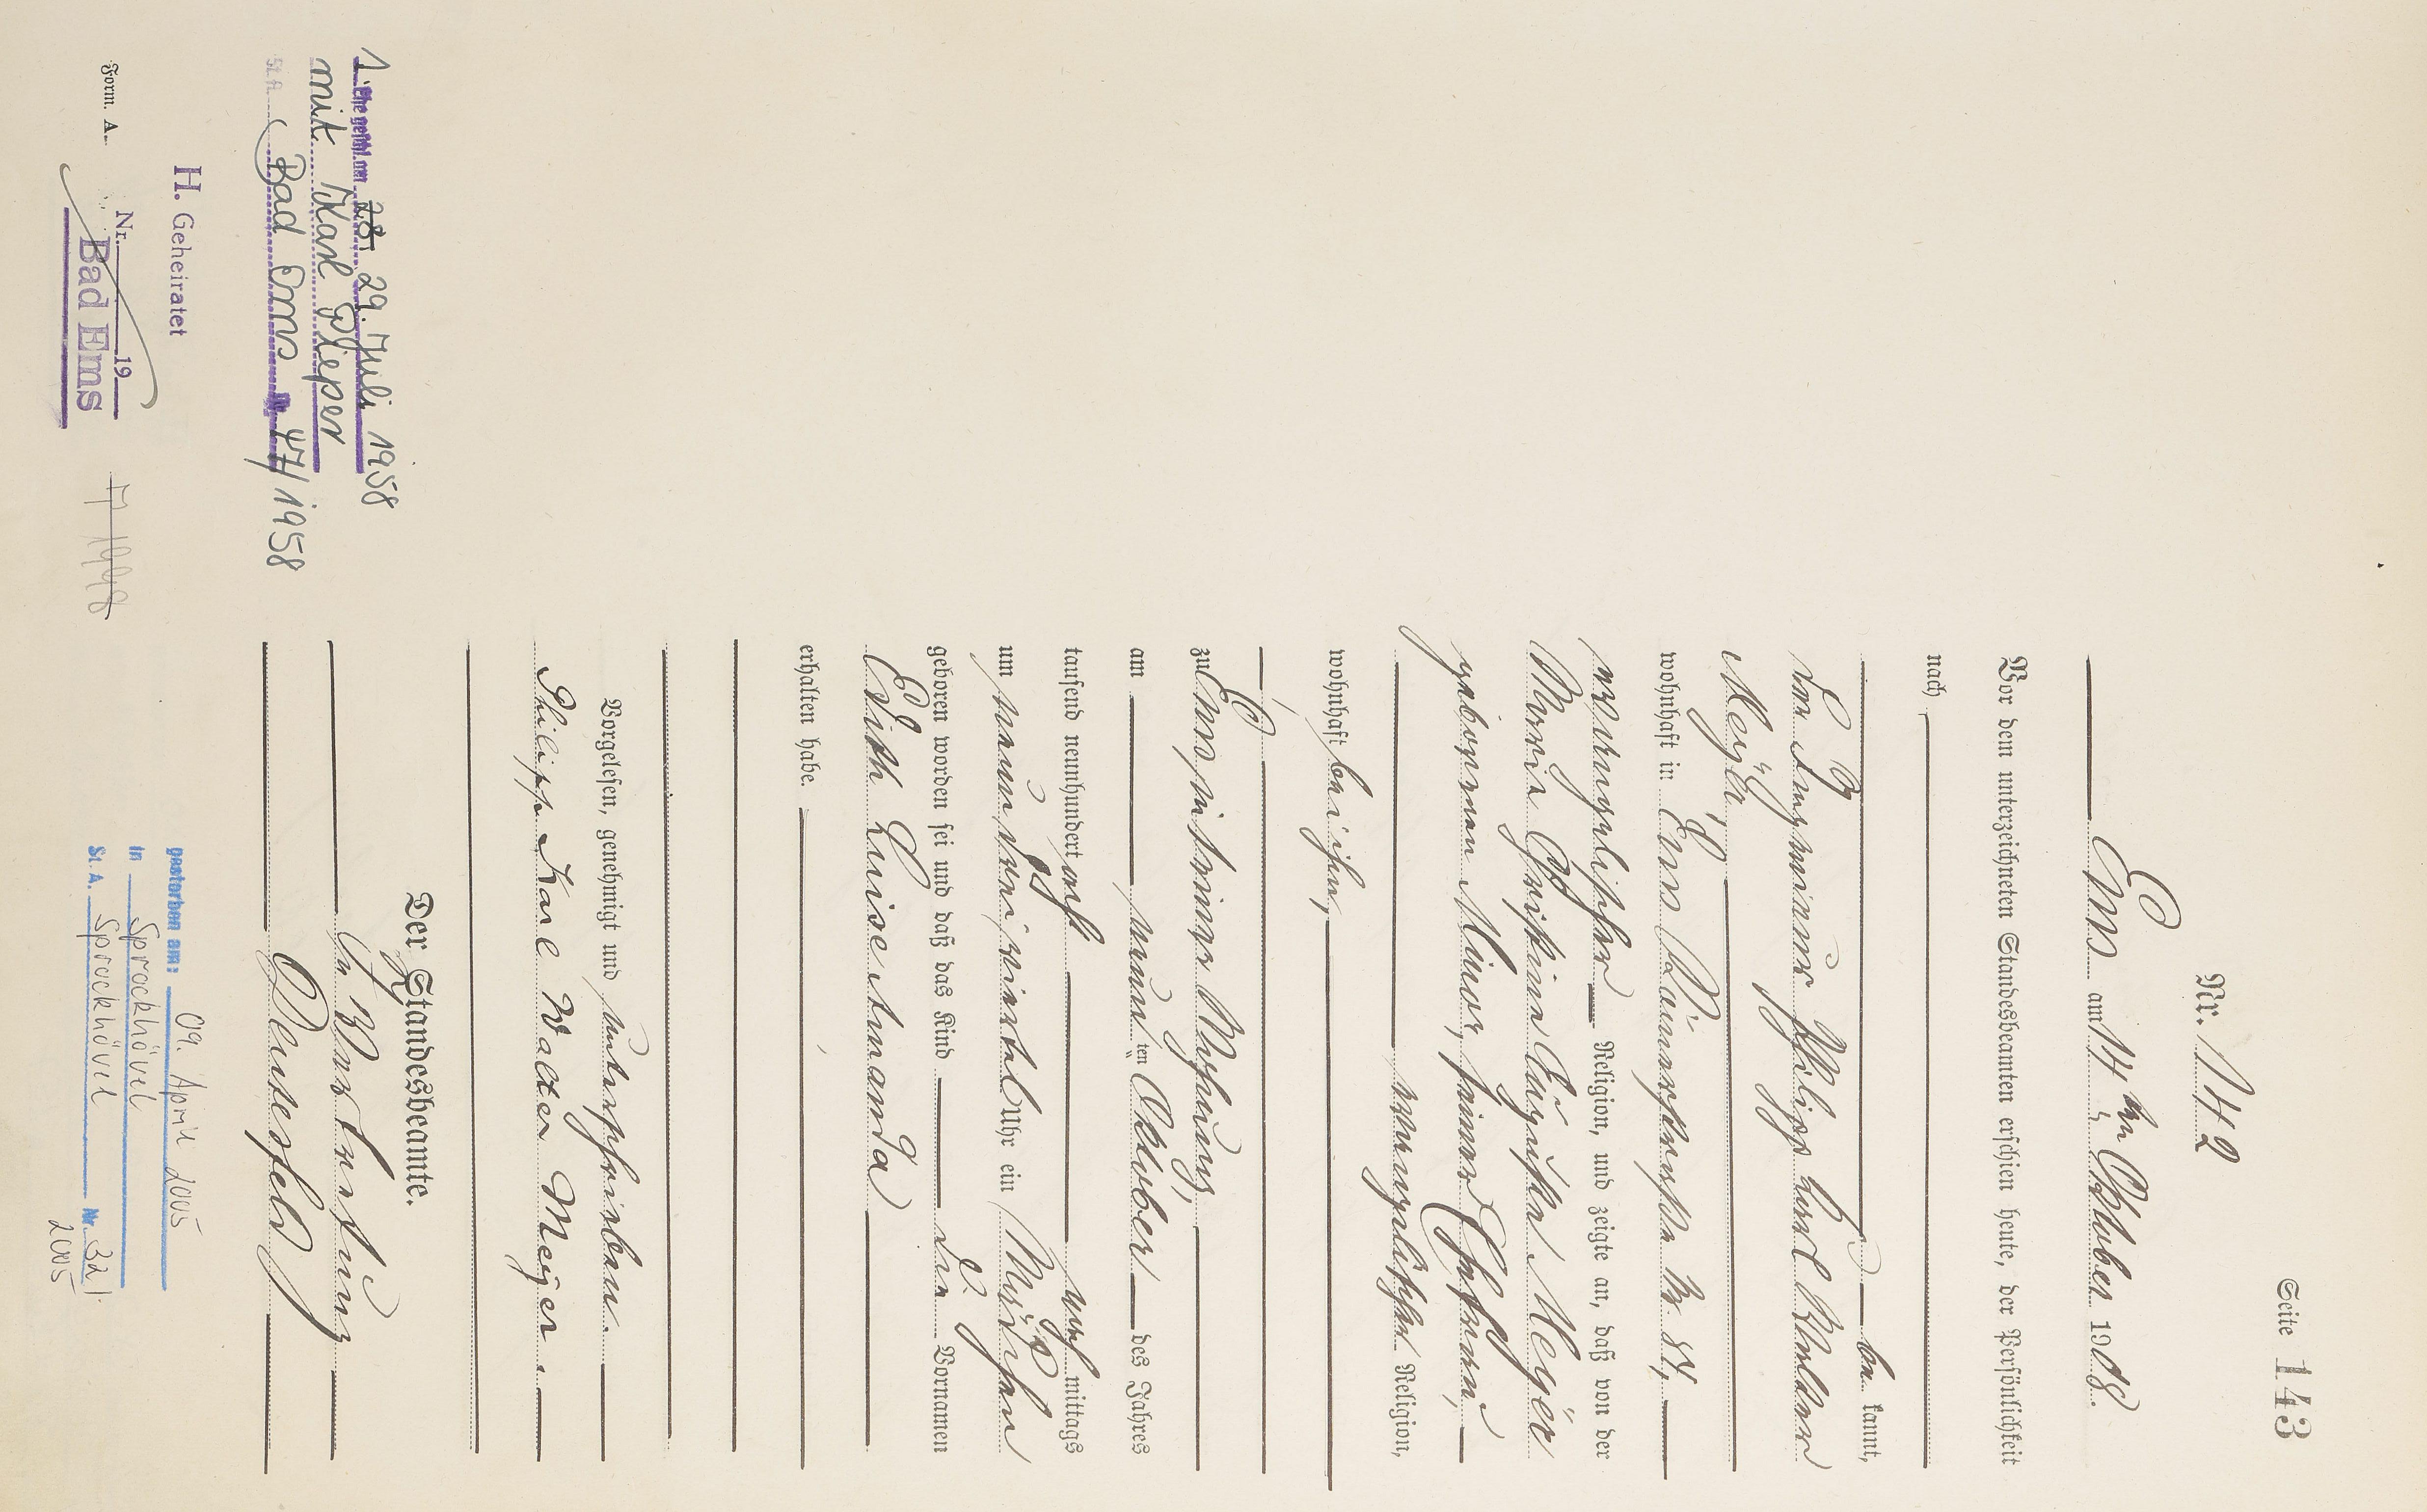 Seite 143
Nr. 142
Ems am 14ten Oktober 1908.
Vor dem unterzeichneten Standesbeamten erschien heute, der Persönlichkeit
nach
be kannt,
der Tagners Philipp Karl Walter
Meyer,
wohnhaft in Ems, Römerstraße Nr. 81,
evangelischer Religion, und zeigte an, daß von der
Maria Christina Auguste Meyer
geborenen Minor, seiner Ehefrau,
evangelischer Religion,
wohnhaft bei ihm,
zu Ems, in seiner Wohnung,
am neunten Oktober des Jahres
tausend neunhundert acht nachmittags
um neun dreiviertel Uhr ein Mädchen
geboren worden sei und daß das Kind die Vornamen
Edith Luise Amanda
erhalten habe.
Vorgelesen, genehmigt und unterschrieben.
Philipp Karl Walter Meyer.
Der Standesbeamte.
In Vertretung
1. Ehe geschl. am 28. 29. Juli 1958
mit Karl Pieper
St. A. Bad Ems Nr. 47/1958
H. Geheiratet
Nr. 19
Bad Ems
Form. A.
gestorben am: 09. April 2005
in Sprockhövel
St. A. Sprockhövel Nr. 32/
2005